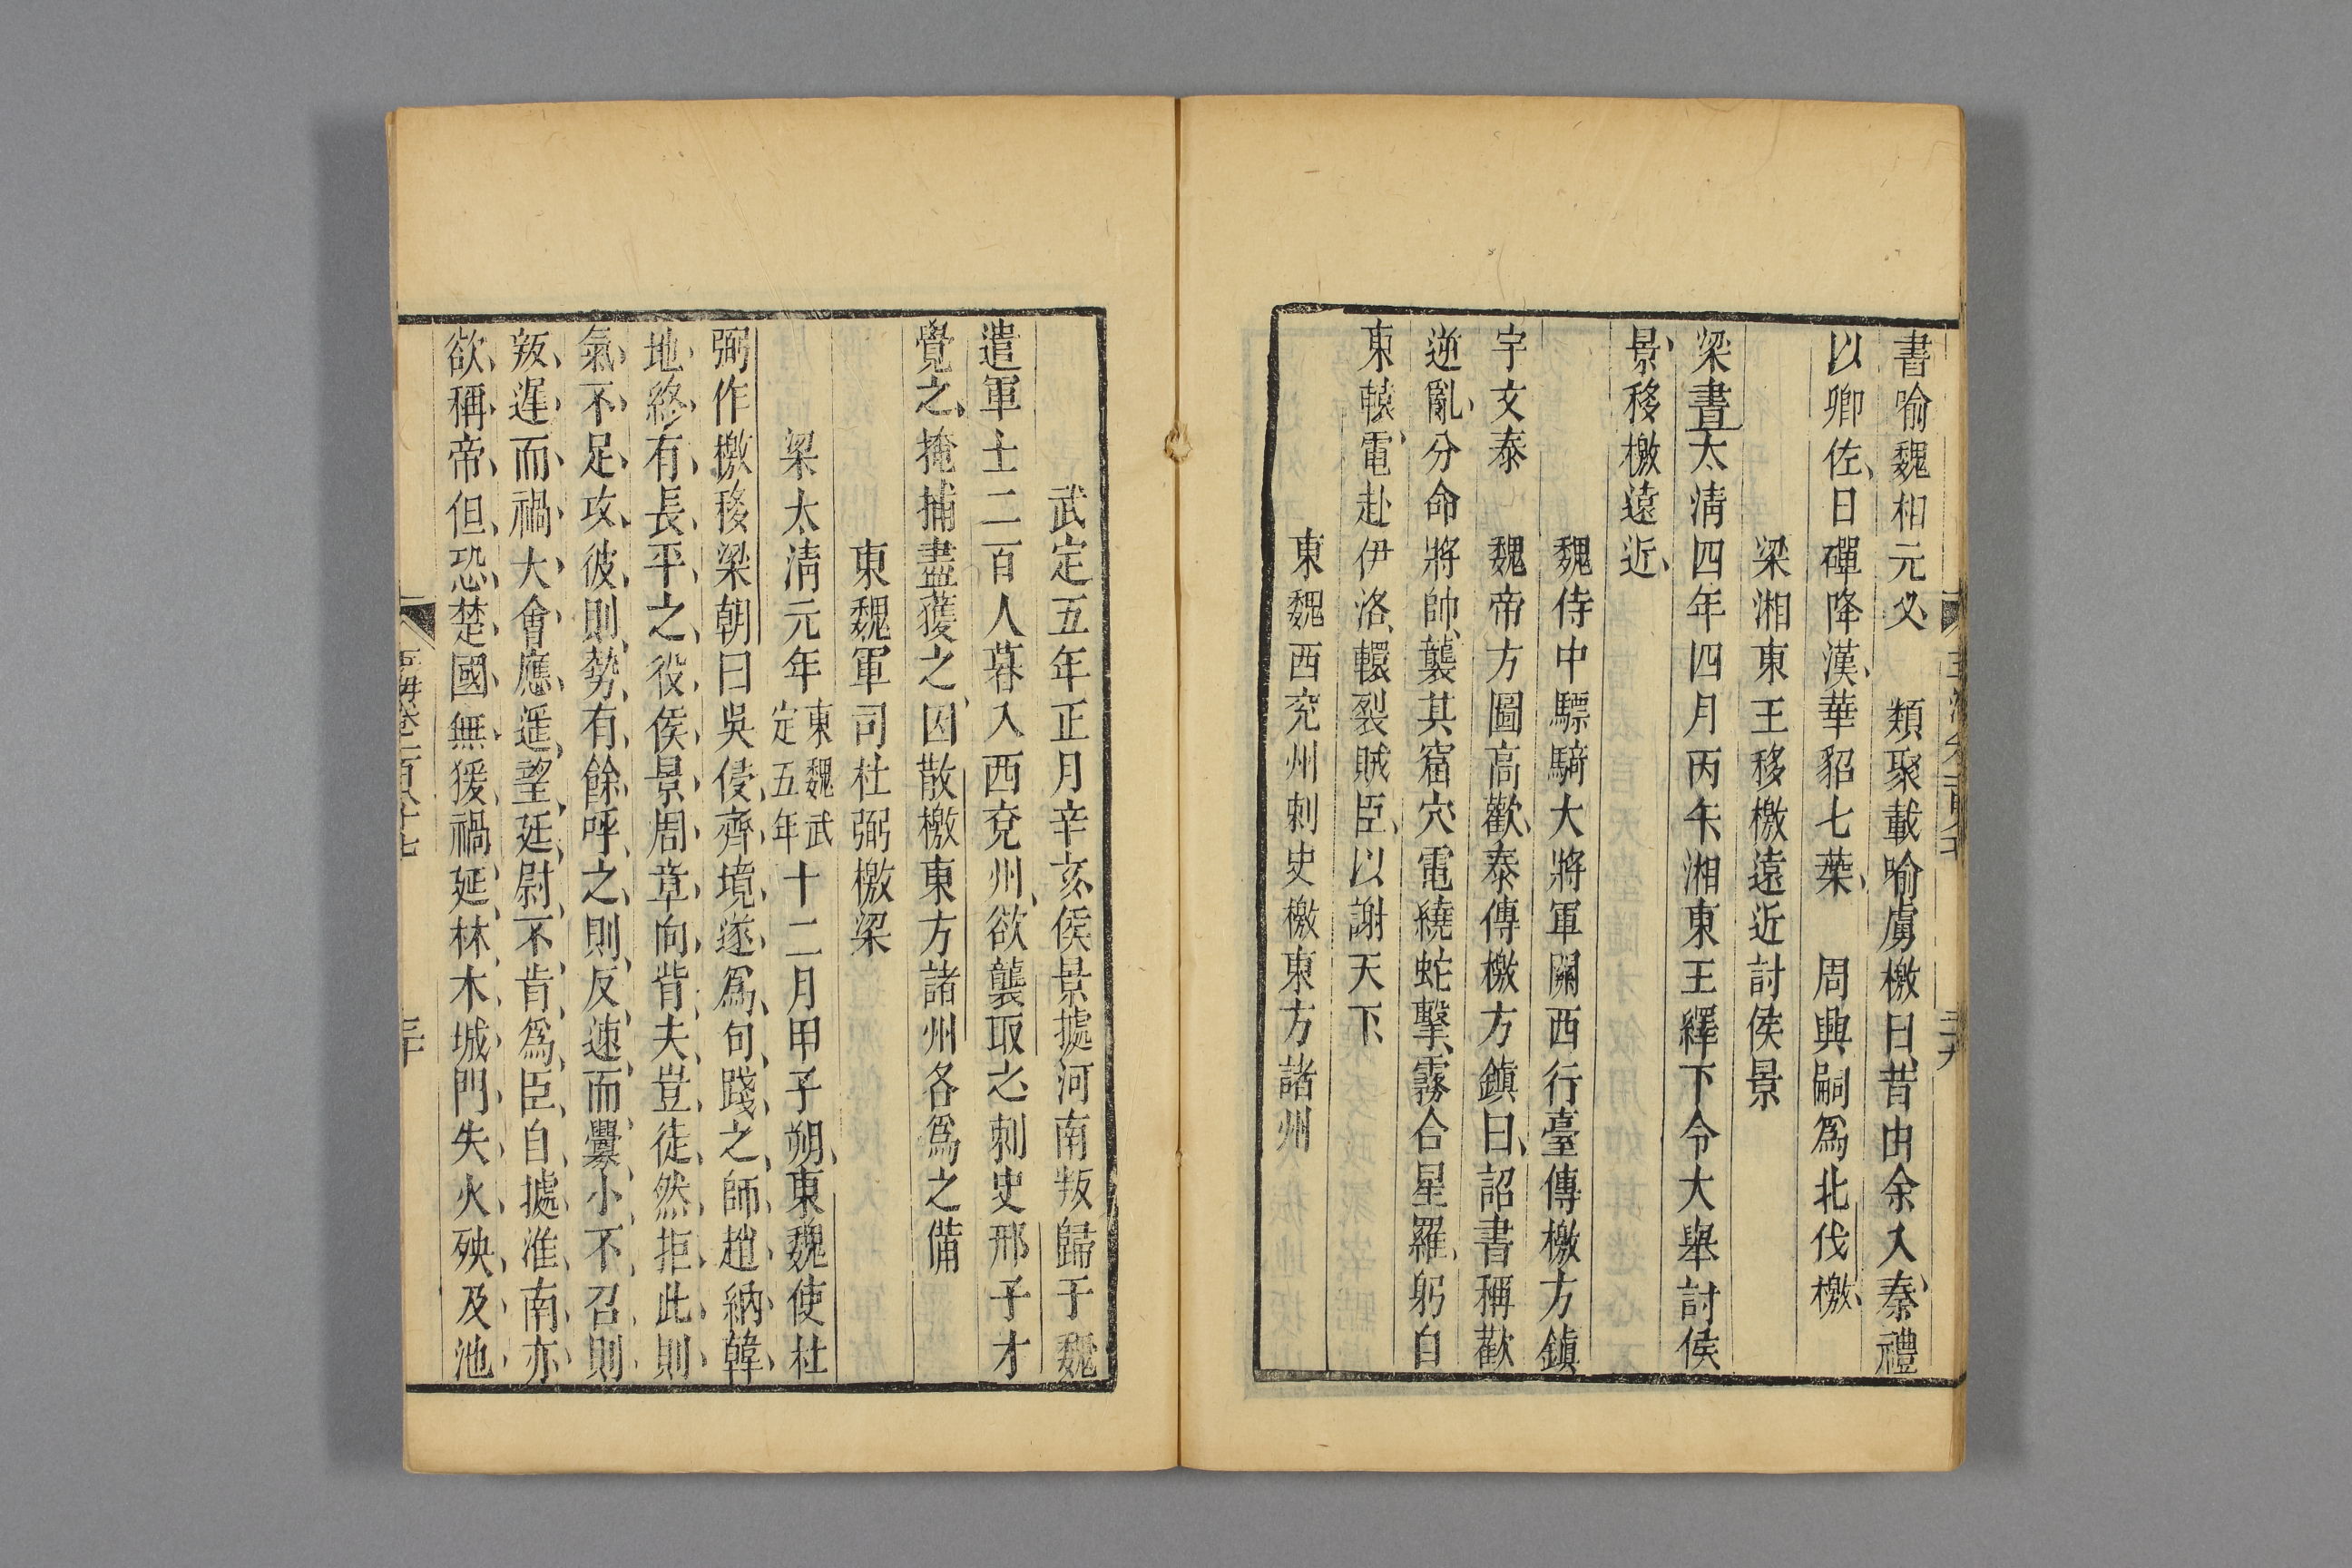 書喻魏相元乂　類聚載喻虜檄曰昔由余入秦禮
以卿佐日磾降漢華貂七葉　周興嗣爲北伐檄
梁湘東王移檄遠近討侯景
梁書太清四年四月丙午湘東王繹下令大舉討侯
景移檄遠近
魏侍中驃騎大將軍關西行臺傳檄方鎮
宇文泰　魏帝方圖高歡泰傳檄方鎮曰詔書稱歡
逆亂分命將帥襲其窟穴電繞蛇擊霧合星羅躬自
東轅電赴伊洛轘裂賊臣以謝天下
東魏西兖州刺史檄東方諸州
武定五年正月辛亥侯景據河南叛歸于魏
遣軍士二百人暮入西兖州欲襲取之刺史邢子才
覺之掩捕盡獲之因散檄東方諸州各爲之備
東魏軍司杜弼檄梁
梁太清元年東魏武定五年十二月甲子朔東魏使杜
弼作檄移梁朝曰吳侵齊境遂爲句踐之師趙納韓
地終有長平之役侯景周章向背夫豈徒然拒此則
氣不足攻彼則勢有餘呼之則反速而釁小不召則
叛遲而禍大會應遥望廷尉不肯爲臣自據淮南亦
欲稱帝但恐楚國無猨禍延林木城門失火殃及池
卷二百八十七
三十